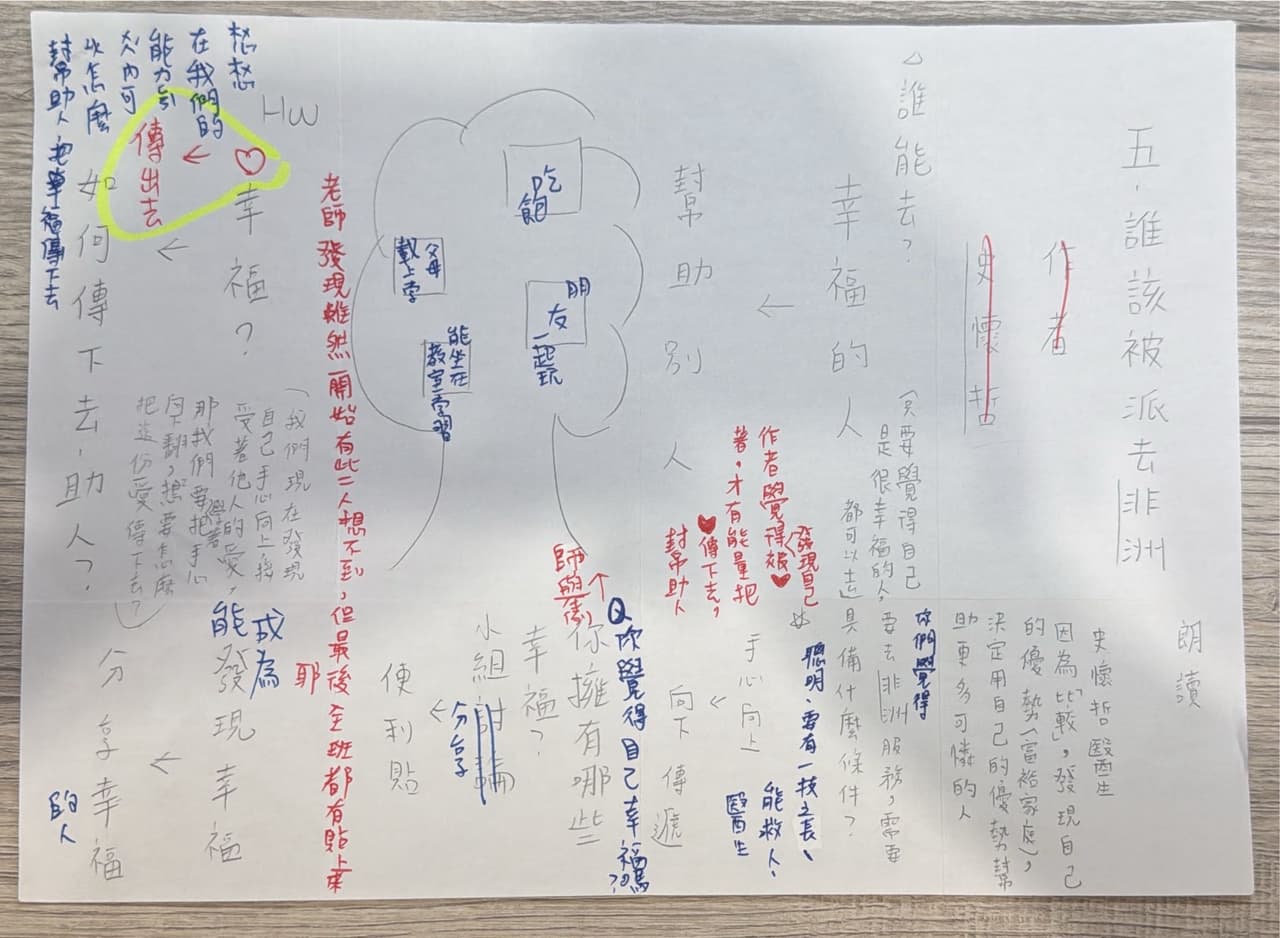 五、誰該被派去非洲
朗讀
作者
史懷哲
史懷哲醫生
因為「比較」，發現自己
的優勢(富裕家庭)，
決定用自己的優勢幫
助更多可憐的人
△誰能去？
(只要覺得自己
是很幸福的人，
都可以去)
幸福的人
↓
幫助別人
你們覺得
要去非洲服務，需要
具備什麼條件？
聰明、要有一技之長、
能救人、
醫生
發現自己
作者覺得被♥
著，才有能量把
♥傳下去，
幫助人
手心向上
↓
向下傳遞
Q你覺得自己幸福嗎？
師與
你擁有哪些
幸福？
小組討論
分享
↓
便利貼
吃飽
朋友一起玩
父母載上學
能坐在
教室學習
老師發現雖然一開始有些人想不到，但最後全班都有貼上來
耶
HW
♡幸福？
↓
傳出去
如何傳下去，助人？
(我們現在發現
自己手心向上接
受著他人的愛，
那我們要學著把手心
向下翻，想想要怎麼
把這份愛傳下去？)
成為
能發現幸福
↓
分享幸福
的人
想想
在我們的
能力
內可
以怎麼
幫助人，把幸福傳下去